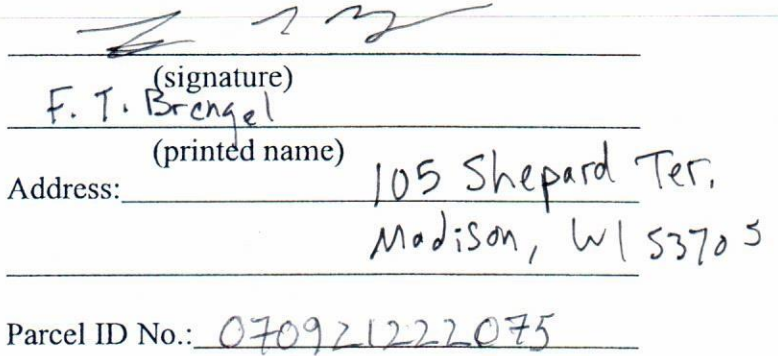 (signature)
F. T. Brengel
(printed name)
Address: 105 Shepard Ter.
Madison, WI 53705
Parcel ID No.: 070921222075